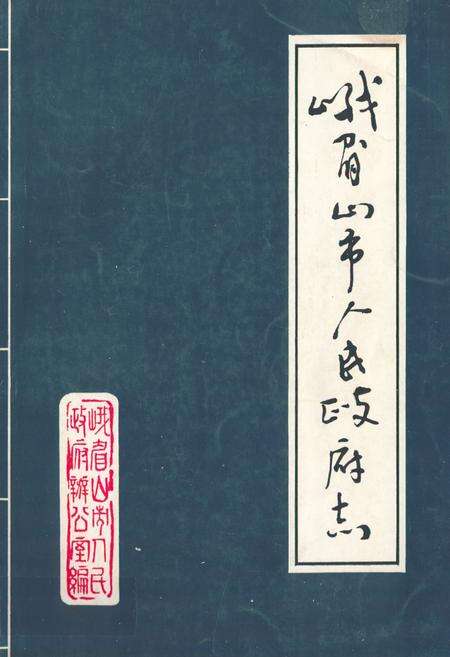 峨眉山市人民政府志
峨眉山市人民
政府辦公室编